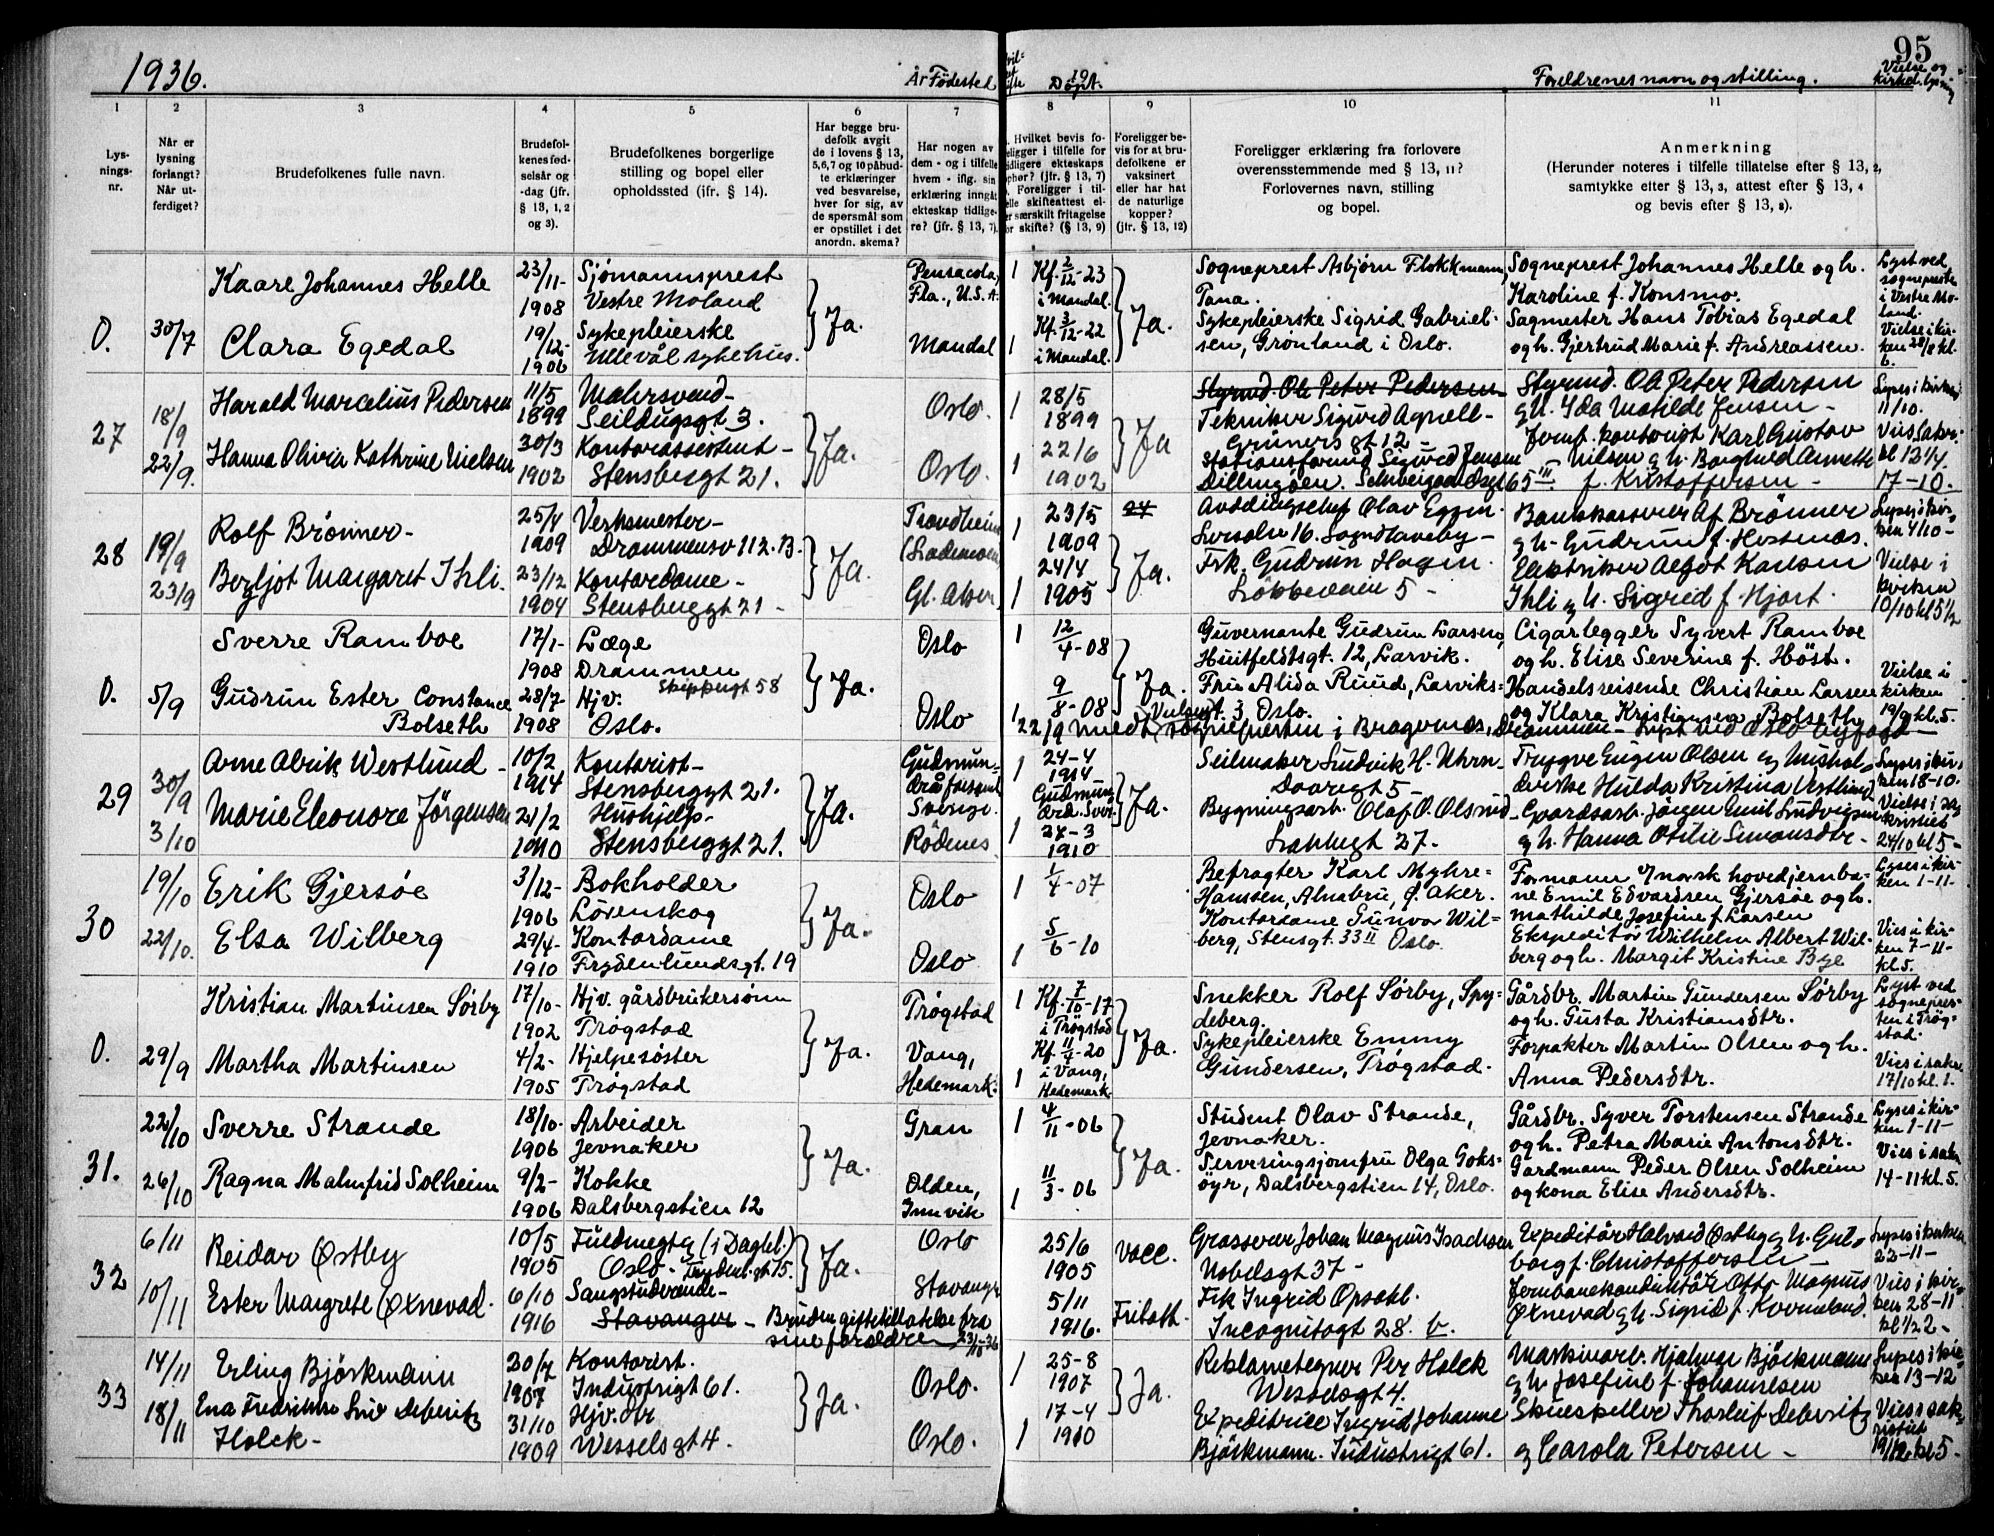 1936.
95
År Fødested
Døpt.
Foreldrenes navn og stilling.
Vielse og
kirkel. lysning
1
2
3
4
5
6
7
8
9
10
11
Lys-
nings-
nr.
Når er
lysning
forlangt?
Når ut-
ferdiget?
Brudefolkenes fulle navn.
Brudefol-
kenes fød-
selsår og
-dag (jfr.
§ 13, 1, 2
og 3).
Brudefolkenes borgerlige
stilling og bopel eller
opholdssted (jfr. § 14).
Har begge bru-
defolk avgit
de i lovens § 13,
5,6,7 og 10 påbud-
te erklæringer
ved besvarelse,
hver for sig, av
de spørsmål som
er opstillet i det
anordn. skema?
Har nogen av
dem - og i tilfelle
hvem - iflg. sin
erklæring inngått
ekteskap tidlige-
re? (jfr. § 13, 7).
Hvilket bevis fo-
religger i tilfelle for
tidligere ekteskaps
ophør? (jfr. § 13, 7)
Foreligger i til-
felle skifteattest el-
ler særskilt fritagelse
for skifte? (§ 13, 9)
Foreligger be-
vis for at bru-
defolkene er
vaksinert
eller har hat
de naturlige
kopper?
(jfr. § 13, 12)
Foreligger erklæring fra forlovere
overensstemmende med § 13, 11?
Forlovernes navn, stilling
og bopel.
Anmerkning
(Herunder noteres i tilfelle tillatelse efter § 13, 2,
samtykke efter § 13, 3, attest efter § 13, 4
og bevis efter § 13, 8).
0.
30/7
Kaare Johannes Helle
23/11-
1908
Sjømannsprest
Vestre Moland
Ja.
Pensacola,
Fla., U.S.A.
1
Kf. 2/12-23
i Mandal.
Ja.
Sogneprest Asbjørn Flokkmann,
Tana.
Sogneprest Johannes Helle og h.
Karoline f. Konsmo.
Lyst ved
sogneprest
i Vestre Mo-
land.
Clara Egedal
19/12-
1906
Sykepleierske
Ullevål sykehus.
Mandal
1
Kf. 3/12-22
i Mandal.
Sykepleierske Sigrid Gabriel-
sen, Grønland i Oslo.
Sagmester Hans Tobias Egedal
og h. Gjertrud Marie f. Andreassen.
Vielse i kir-
ken 28/8 kl.
6.
27
18/9
22/9.
Harald Marcelius Pedersen
11/5
1899
Malersvend-
Seildugsgt 3.
Ja.
Oslo.
1
28/5
1899
Ja
Styrmd. Ole Peter Pedersen
Tekniker Sigurd Agnell-
Grüners gt 12-
Styrmd. Ole Peter Pedersen
g h. Ida Matilde Jensen-
Lyses i kirken
11/10.
Hanna Olivia Kathrine Nielsen
30/3
1902
Kontorassistent-
Stensbergt 21.
Oslo.
1
22/6
1902
Stationsformd Sigurd Jensen
Dillingøen.
Jernf. kontorist Karl Gustav
Nilsen g h. Borghild Annette
f. Kristoffersen-
17-10.
28
19/9
23/9
Rolf Brønner-
25/4
1909
Verksmester-
Drammensv 112. B-
Ja.
Trondheim
(Lademoen)
1
23/5
1909
Ja.
Avdelingschef Olav Eggen.
Sognshaveby-
g h. Gudrun f. Hestnæs.
Lyses i kir-
ken 4/10-
Bergljot Margaret Ihli.
23/12
1904
Kontordame-
Stensberggt 21-
Gl. Aker
1
24/4
1905
Frk. Gudrun Hagen.
Løkkeveien 5-
Ihli g h. Sigrid f. Hjort.
Vielse i
kirken
10/10 kl 5½
0.
5/9
Sverre Ramboe
17/1-
1908
Læge
Drammen
Skippergt 58
Ja.
Oslo
1
12/4-08
Ja.
Guvernante Gudrun Larsen,
Huitfeldtsgt. 12, Larvik.
Cigarlegger Syvert Ramboe
og h. Elise Severine f. Höst.
Gudrun Ester Constance
Bolseth
28/7-
1908
Hjv.
Oslo.
Oslo
1
9/8-08
Fru Alida Ruud, Larviks-
3 Oslo.
Handelsreisende Christian Larsen
og Klara Kristiansen Bolseth
Vielse i
kirken
19/9 kl. 5.
22/9 meldt sognepresten i Bragernes, Drammen- Lyst ved Oslo byfogd-
29
30/9
3/10
Arne Alrik Westlund-
10/2
1914
Kontorist-
Stensberggt 21.
Ja.
Gudmun-
drå forsaml.
Sverige.
1
24-4
1914
Gudmun-
drå. Sver.
Ja.
Seilmaker Ludvik H. Uhrn-
Trygve Eugen Olsen og
Hulda Kristina Vestlund
Lyses i kir-
ken 18-10.
Marie Eleonore Jørgensen
21/2
1910
Hushjelp-
Stensberggt 21.
Rödenes
1
27-3
1910
Bygningsarb. Olaf O. Olsrud
Løkkegt 27-
Gaardsarb. Jørgen Emil Ludvigsen
g h. Hanna Otilie Simonsdtr-
Vielse i sa-
kristiet
24/10 kl 5-
30
19/10
22/10.
Erik Gjersøe
3/12-
1906
Bokholder
Lörenskog
Ja.
Oslo
1
1/4-07
Befragter Karl Myhre-
Hansen, Alnabru, ø. Aker.
Formann v/norsk hovedjernba-
ne Emil Edvardsen Gjersøe og h.
Mathilde Josefine f. Larsen
Lyses i kir-
ken 1-11-
Elsa Wilberg
29/4-
1910
Kontordame
Frydenlundsgt. 19
Oslo
1
5/6-10
Kontordame Gunvor Wil-
berg, Stensgt. 33 II Oslo.
Ekspeditør Wilhelm Albert Wil-
berg og h. Margit Kristine Bye
Vies i kir-
ken 7-11-
kl. 5.
0.
29/9
Kristian Martinsen Sörby
17/10-
1902
Hjv. gårdbrukersønn
Trøgstad
Ja.
Trøgstad
1
Kf. 7/10-17
i Trøgstad
Ja.
Snekker Rolf Sörby, Spy-
deberg.
Gårdbr. Martin Gundersen Sörby
og h. Gusta Kristiansdtr.
Lyst ved
sognepres-
ten i Trøg-
stad.
Martha Martinsen
4/2-
1905
Hjelpesöster
Trøgstad
Vang,
Hedemark.
1
Kf. 11/4-20
i Vang,
Hedemark.
Sykepleierske Emmy
Gundersen, Trøgstad.
Forpakter Martin Olsen og h.
Anna Pedersdtr.
Vies i sakr.
17/10 kl. 1.
31.
22/10
26/10
Sverre Strande
18/10-
1906
Arbeider
Jevnaker
Ja.
Gran
1
4/11-06
Ja.
Student Olav Strande,
Jevnaker.
Gårdbr. Syver Torstensen Strande
og h. Petra Marie Antonsdtr.
Lyses i kir-
ken 1-11-
Ragna Malmfrid Solheim
9/2-
1906
Kokke
Dalsbergstien 12
Olden,
Innvik
1
11/3-06
Serveringsjomfru Olga Goks-
öyr, Dalsbergstien 14, Oslo.
Gardmann Peder Olsen Solheim
og kona Elise Andersdtr.
Vies i sakr
14-11 kl. 5.
32
6/11
10/11
Reidar Østby
10/5
1905
Fuldmegtg (i Dagbl.)
Oslo- Frydenl. gt 15.
Ja.
Oslo
25/6
1905
Vacc.
Grosserer Johan Magnus Isachsen
Nobelsgt 37-
Expeditør Halvard Østby g h. Gul-
borg f. Christoffersen-
Lyses i kirken
22-11-
Ester Margrete Øxnevad.
6/10
1916
Sangstuderende-
Stavanger-
Stavanger
Bruden giftetillatelse fra
sine foreldre 23/10-36
5/11
1916.
Fritatt.
Frk Ingrid Opsahl.
Incognitogt 28. b.
Jernbanekonduktør Otto Magnus
Øxnevad g h. Sigrid f. Kverneland.
Vies i kir-
ken 28-11
kl ½ 2-
33
14/11
18/11
Erling Björkmann
20/7
1907
Kontorist.
Industrigt 61.
Ja.
Oslo.
1
25-8
1907
Ja.
Reklametegner Per Holck
Wesselsgt 4.
Maskinarb. Hjalmar Björkmann
g h Josefine f. Johannesen
Lyses i kir-
ken 13-12
Ena Fredrikke Siv Deberitz
Holck-
31/10
1909
Hjv. dtr
Wesselsgt 4.
Oslo.
1
17-4
1910
Expeditrice Ingrid Johanne
Björkmann. Industrigt 61.
Skuespiller Thorleif Deberitz
g Carola Petersen-
Vies i sak-
ristiet
19/12 kl 5-